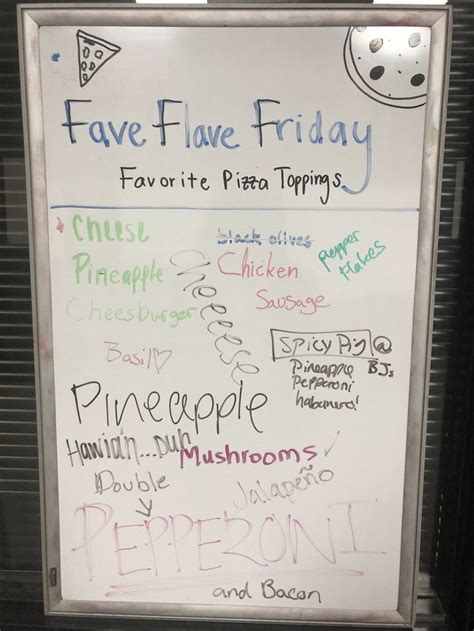 Fave Flave Friday
Favorite Pizza Toppings
Cheese
black olives
pepper flakes
Pineapple
cheeeeese
Chicken
Cheesburger
Sausage
Basil♡
SPICY Pig @ BJs
Pineapple
Pepperoni
habanero!
Pineapple
Hawiian...duh
Mushrooms ✓
Double
Jalapeño
PEPPERONI
and Bacon